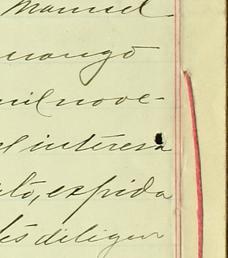 Manuel
nongo
mil nove-
el interesa
ito, expida
tes diligen